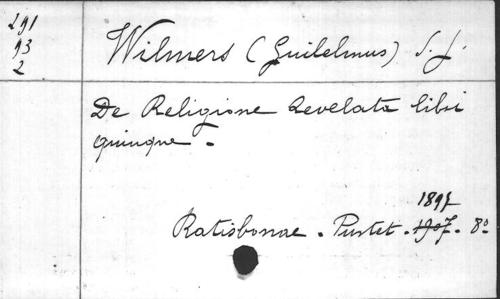 291
93
2
Wilmers (Guilelmus) S. J.
De Religione revelata libri
quinque.
1897
Ratisbonae. Pustet. 1907. 8°